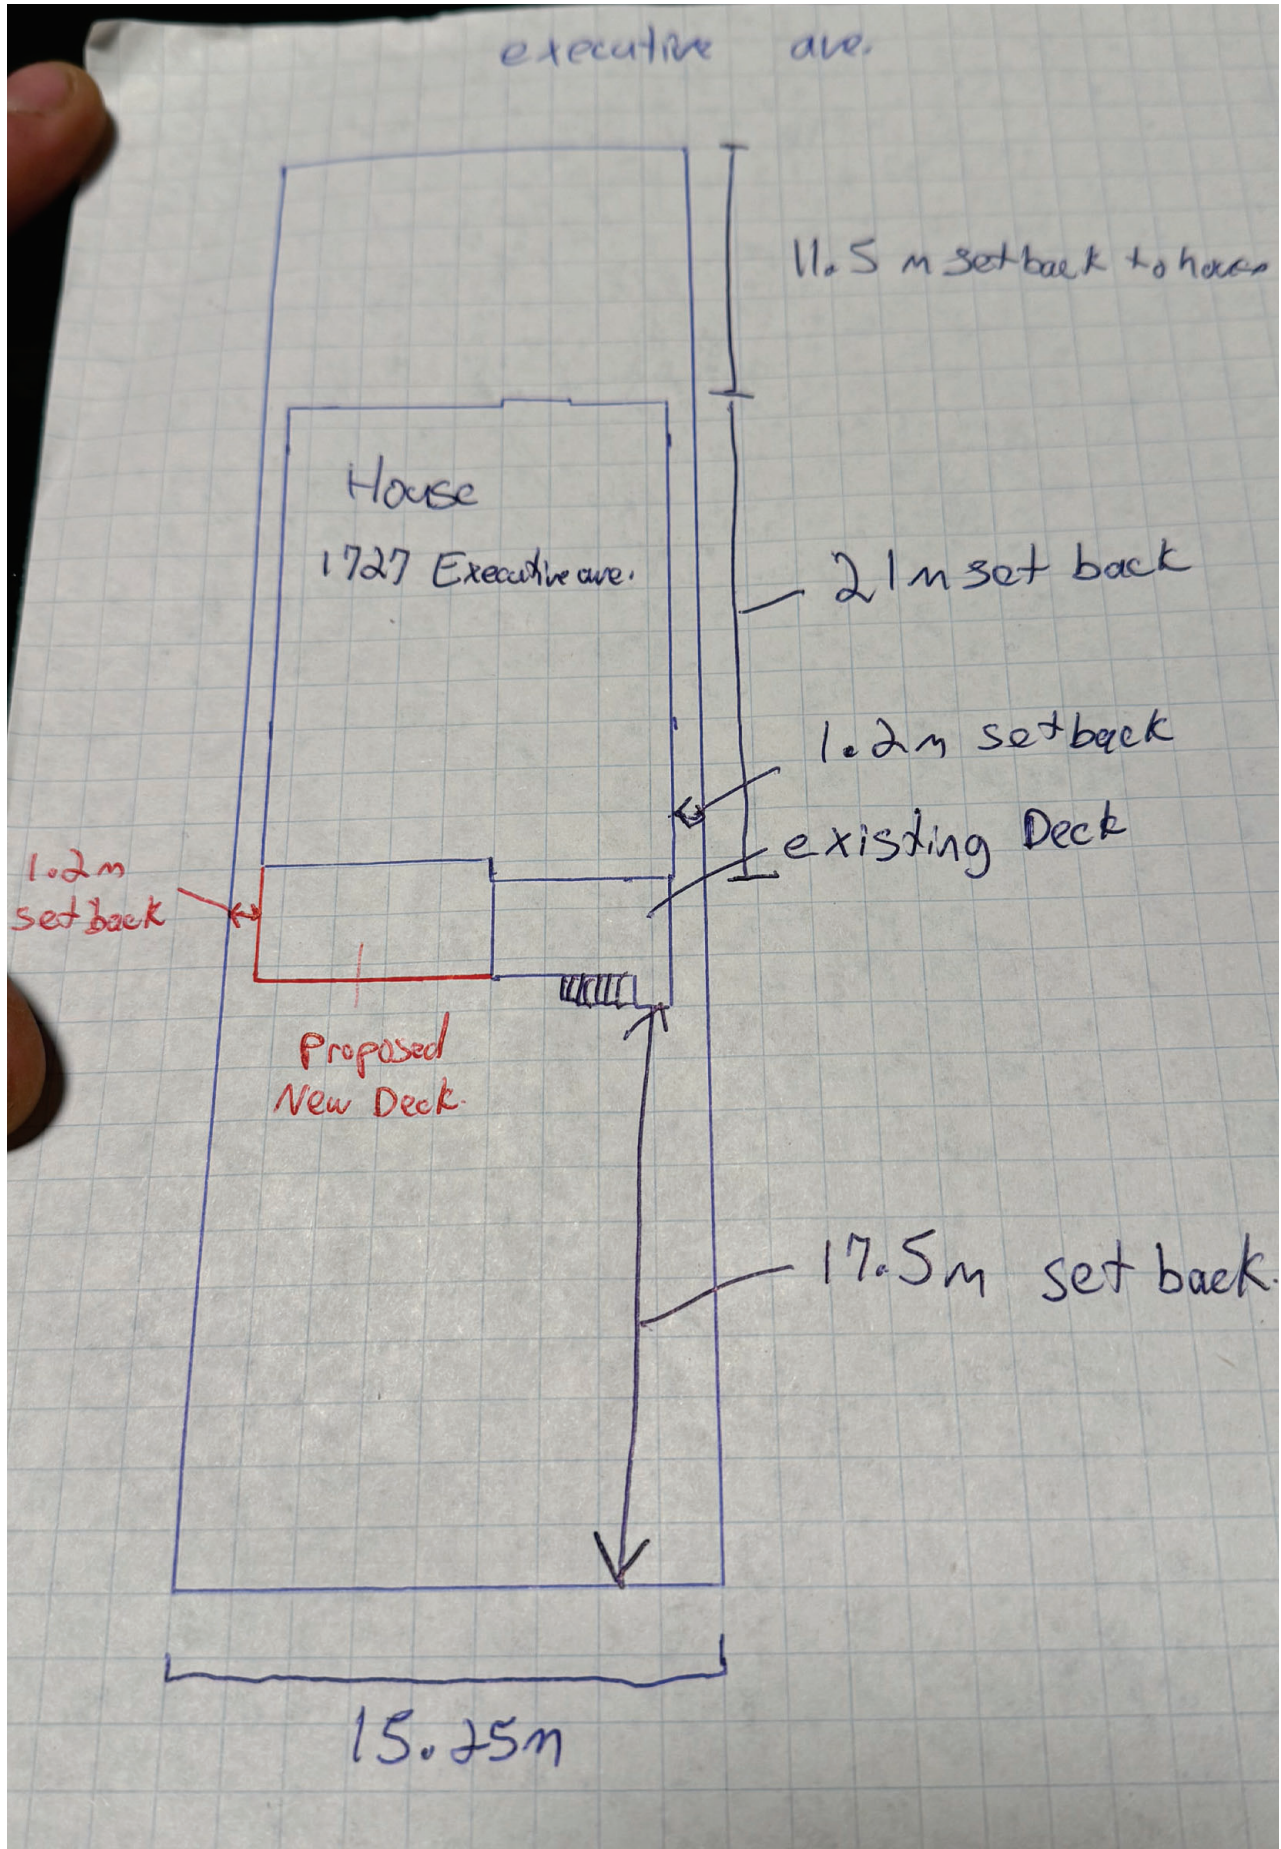 executive ave.
11.5 m setback to house
House
1727 Executive ave.
21m set back
1.2m setback
existing Deck
1.2m
setback
Proposed
New Deck.
17.5m set back.
15.25m